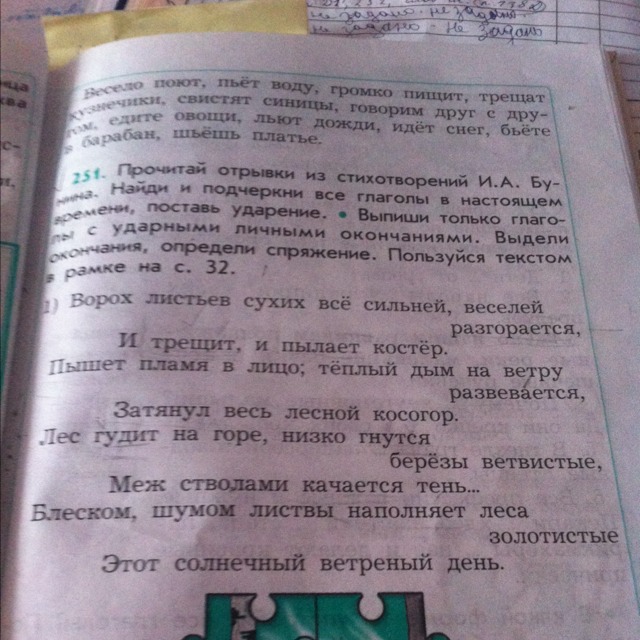 не задано не задано
не задано не задано
Весело поют, пьёт воду, громко пищит, трещат
кузнечики, свистят синицы, говорим друг с дру-
гом, едите овощи, льют дожди, идёт снег, бьёте
в барабан, шьёшь платье.
251. Прочитай отрывки из стихотворений И.А. Бу-
нина. Найди и подчеркни все глаголы в настоящем
времени, поставь ударение. • Выпиши только глаго-
лы с ударными личными окончаниями. Выдели
окончания, определи спряжение. Пользуйся текстом
в рамке на с. 32.
1) Ворох листьев сухих всё сильней, веселей
разгорается,
И трещит, и пылает костёр.
Пышет пламя в лицо; тёплый дым на ветру
развевается,
Затянул весь лесной косогор.
Лес гудит на горе, низко гнутся
берёзы ветвистые,
Меж стволами качается тень...
Блеском, шумом листвы наполняет леса
золотистые
Этот солнечный ветреный день.